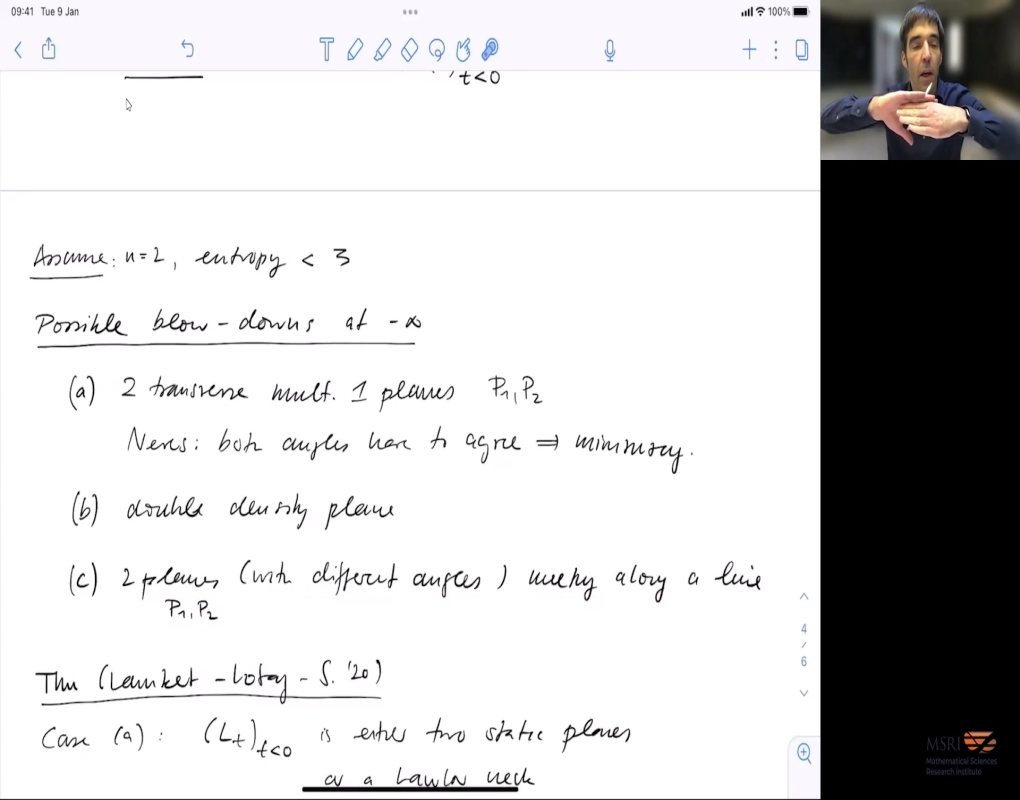 09:41 Tue 9 Jan
100%
t<0
Assume: n=2, entropy < 3
Possible blow-downs at -∞
(a) 2 transverse mult. 1 planes P₁, P₂
Neves: both angles have to agree ⇒ minimizing.
(b) double density plane
(c) 2 planes (with different angles) meeting along a line
P₁, P₂
4
/
6
Thm (Lambert - Lotay - S. '20)
Case (a): (L_t)_{t<0} is either two static planes
or a Lawlor neck
MSRI
Mathematical Sciences
Research Institute